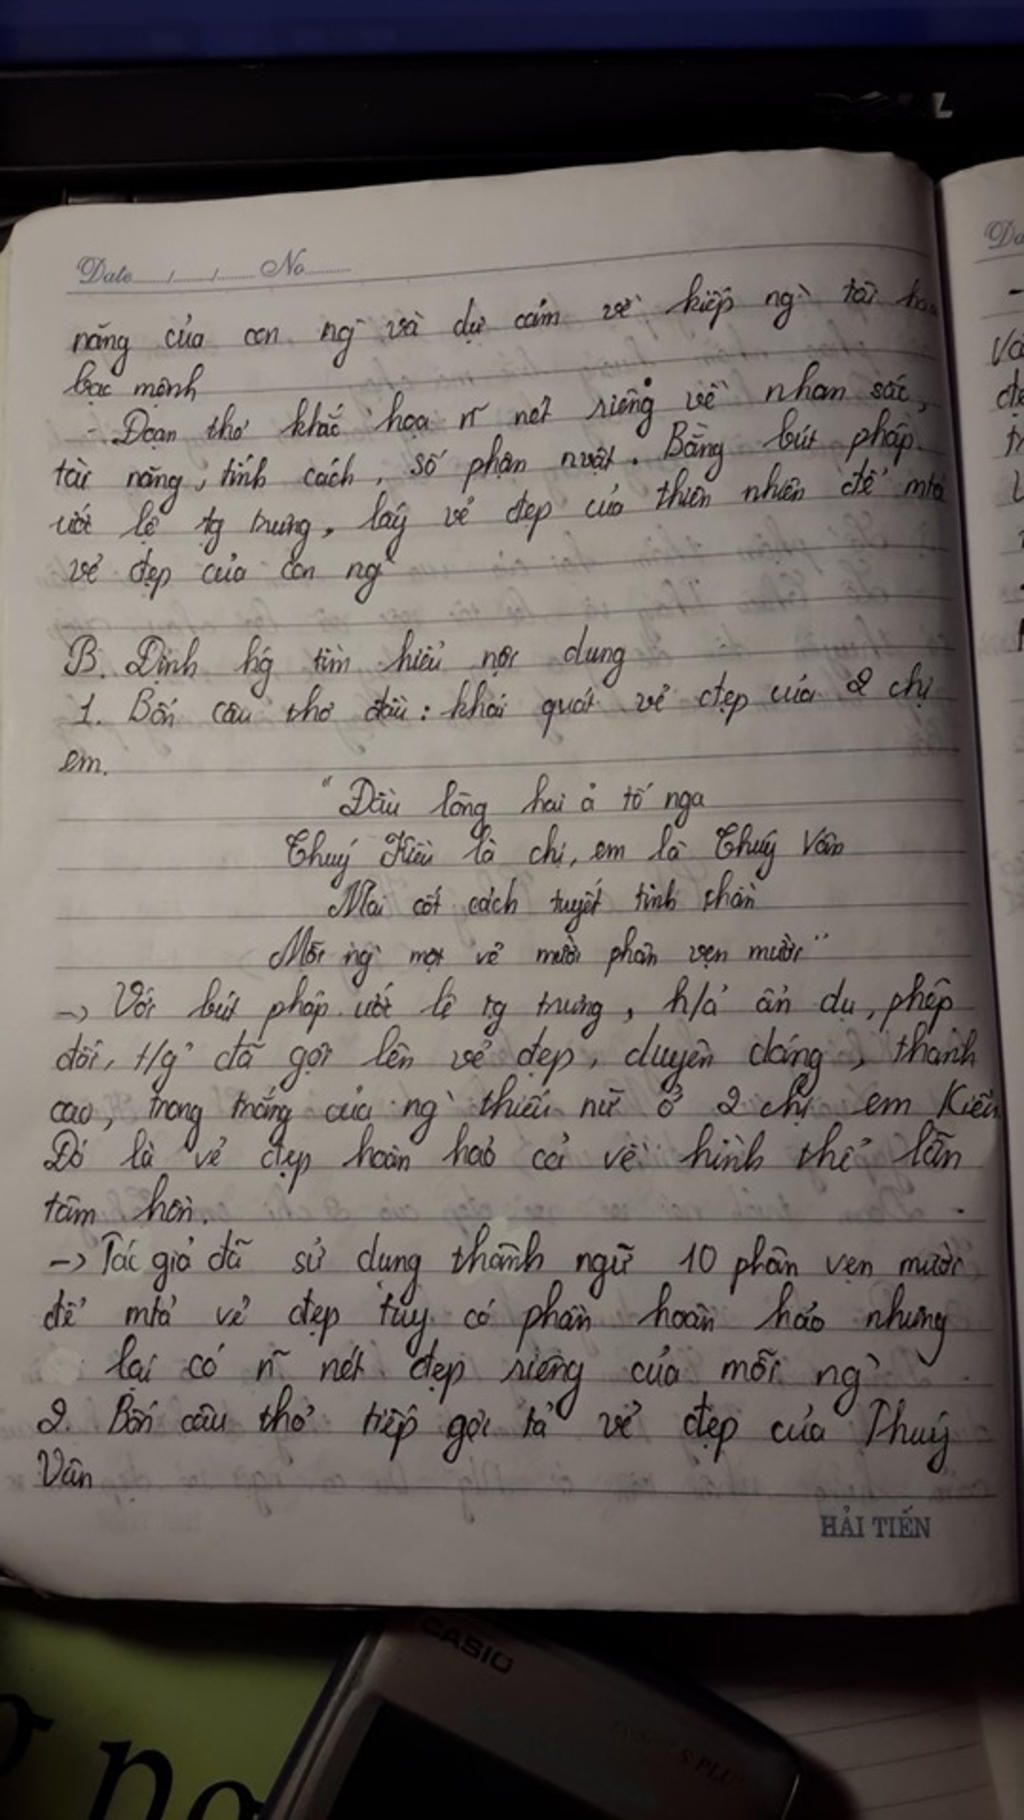 DELL
Date / / No
năng của con ng` và dự cảm về kiếp ng` tài hoa
bạc mệnh
- Đoạn thơ khắc họa n~ nét riêng về nhan sắc,
tài năng, tính cách, số phận nvật. Bằng bút pháp
ước lệ tg trưng, lấy vẻ đẹp của thiên nhiên để mtả
vẻ đẹp của con ng`
B. Định hg tìm hiểu nội dung
1. Bốn câu thơ đầu: khái quát vẻ đẹp của 2 chị
em.
"Đầu lòng hai ả tố nga
Thuý Kiều là chị, em là Thuý Vân
Mai cốt cách tuyết tinh thần
Mỗi ng` một vẻ mười phân vẹn mười"
-> Với bút pháp ước lệ tg trưng, h/ả ẩn dụ, phép
đối, t/g' đã gợi lên vẻ đẹp, duyên dáng, thanh
cao, trong trắng của ng` thiếu nữ ở 2 chị em Kiều
Đó là vẻ đẹp hoàn hảo cả về hình thể lẫn
tâm hồn.
-> Tác giả đã sử dụng thành ngữ 10 phân vẹn mười
để mtả vẻ đẹp tuy có phần hoàn hảo nhưng
lại có n~ nét đẹp riêng của mỗi ng`
2. Bốn câu thơ tiếp gợi tả vẻ đẹp của Thuý
Vân
HẢI TIẾN
CASIO